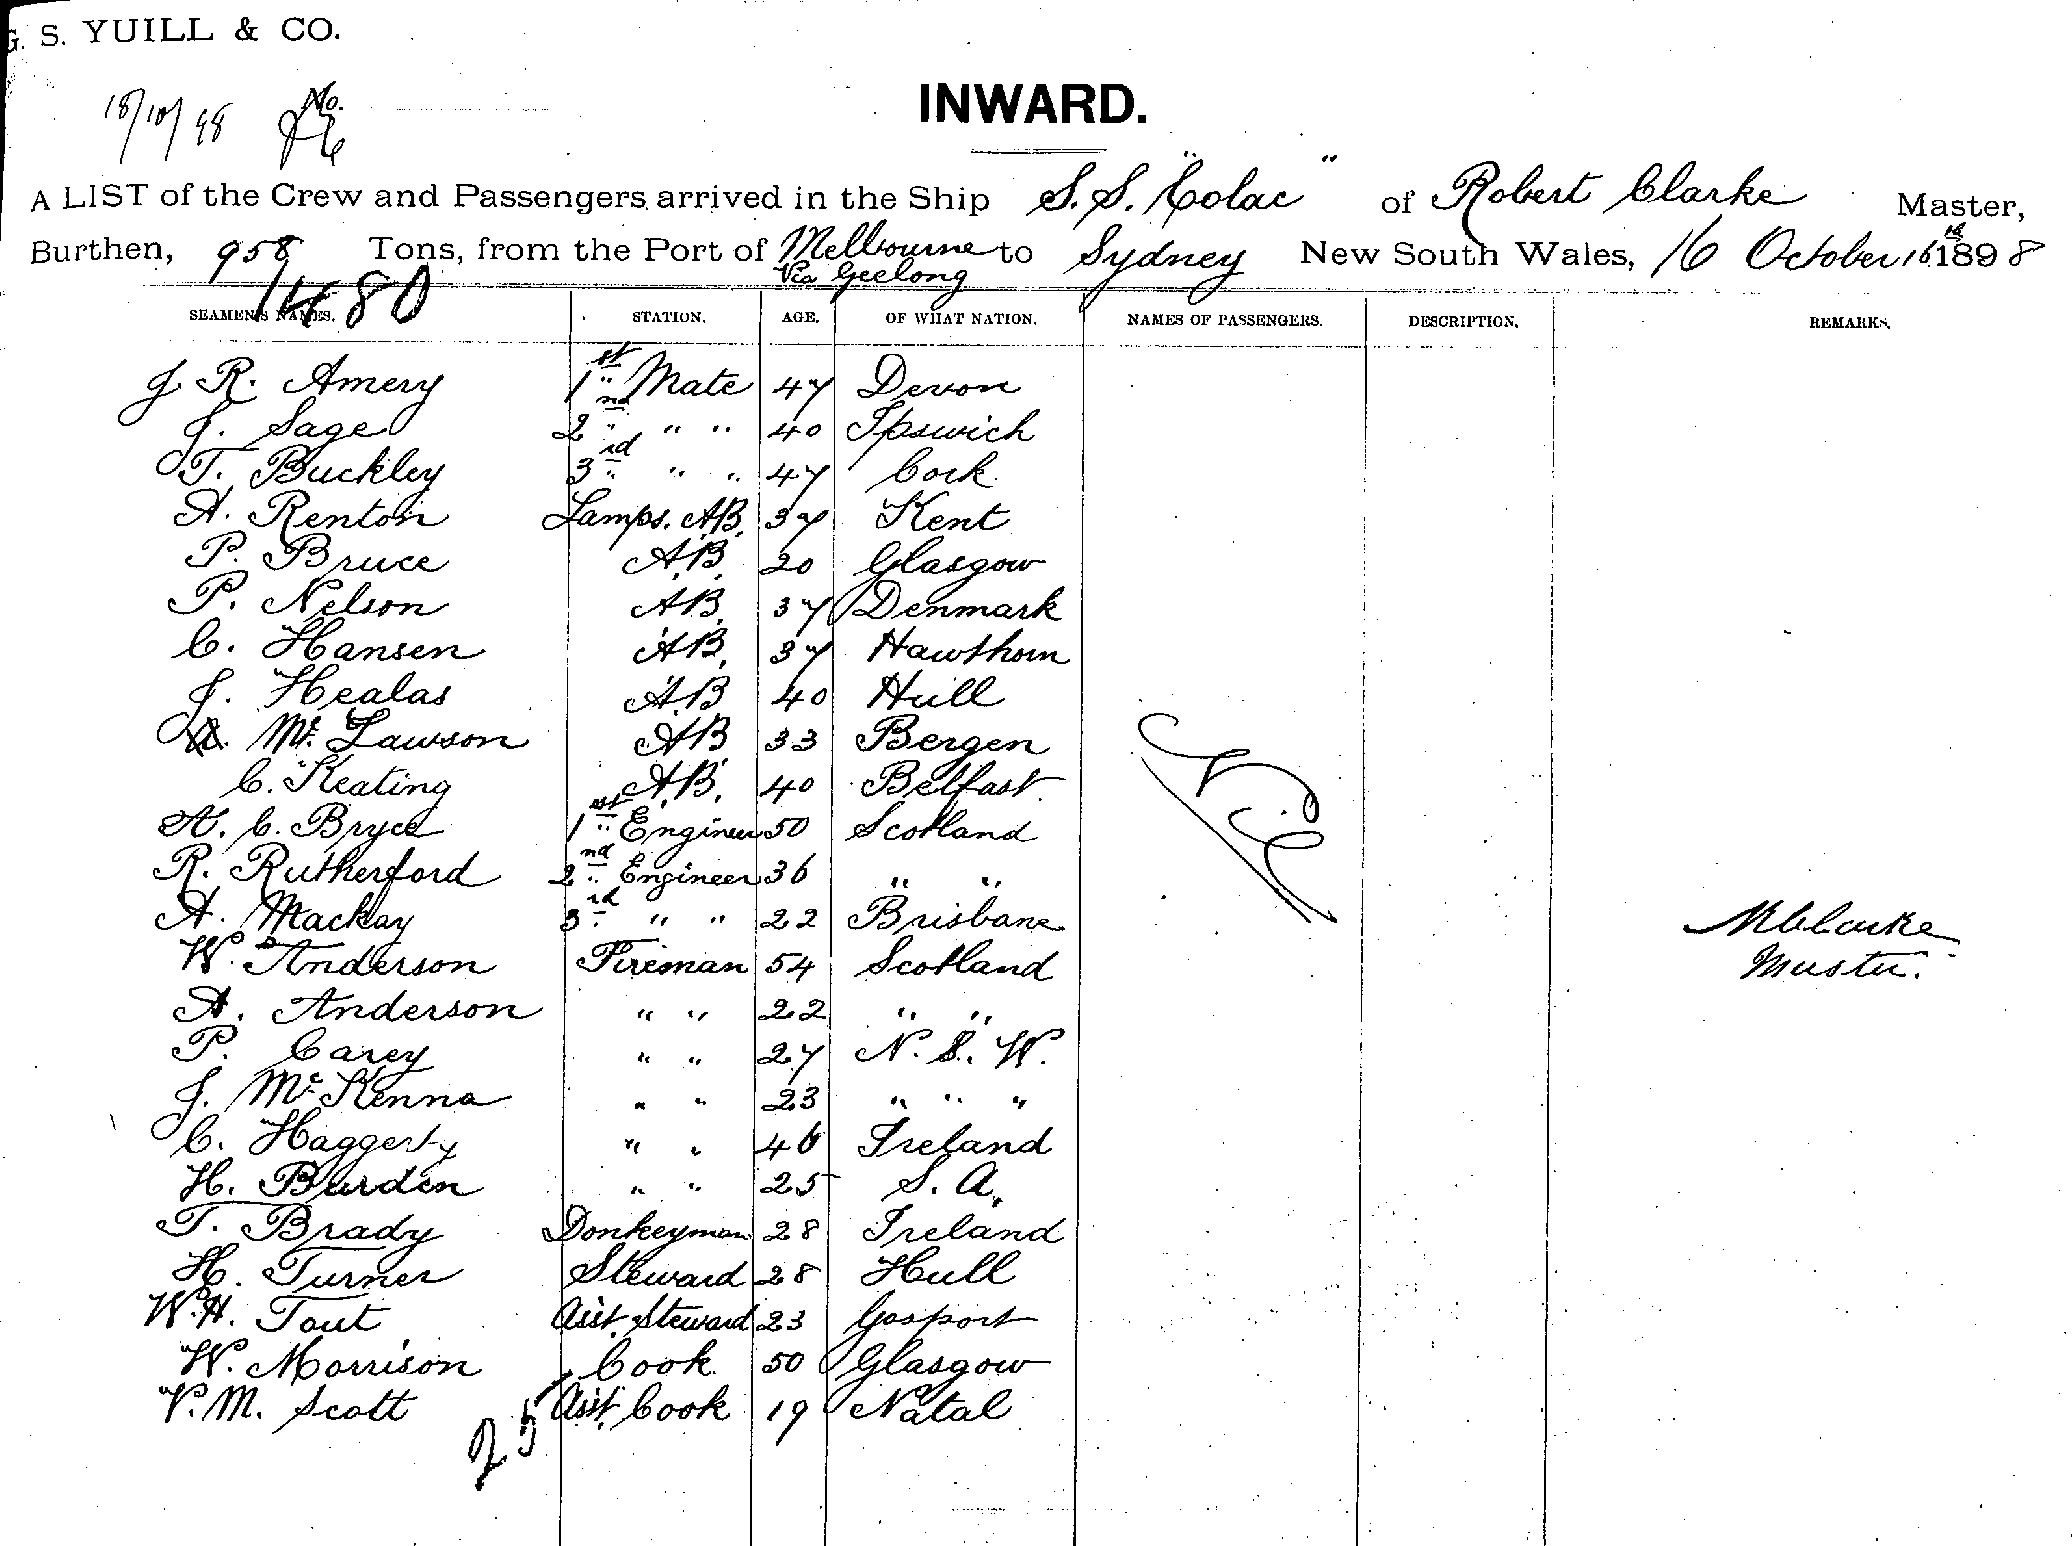 G. S. YUILL & CO.
18/10/98 No.
INWARD.
A LIST of the Crew and Passengers arrived in the Ship S.S. "Colac" of Robert Clarke Master,
Burthen, 958 Tons, from the Port of Melbourne to Sydney New South Wales, 16 October 16th 1898
Via Geelong
1480
SEAMEN'S NAMES. STATION. AGE. OF WHAT NATION. NAMES OF PASSENGERS. DESCRIPTION. REMARKS.
J R. Amery 1st Mate 47 Devon
J. Sage 2nd " " 40 Ipswich
T. Buckley 3rd " " 47 Cork
A. Renton Lamps. A.B. 37 Kent
P. Bruce A.B. 20 Glasgow
P. Nelson A.B. 37 Denmark
C. Hansen A.B. 37 Hawthorn
J. Healas A.B 40 Hull
Mc Lawson AB 33 Bergen
C. Keating A.B. 40 Belfast
A. C. Bryce 1st Engineer 50 Scotland
R. Rutherford 2nd Engineer 36 " "
A. Mackay 3rd " " 22 Brisbane
W. Anderson Fireman 54 Scotland
A. Anderson " " 22 " "
P. Carey " " 27 N. S. W.
J. McKenna " " 23 " " "
C. Haggerty " " 46 Ireland
H. Burden " " 25 S. A.
T. Brady Donkeyman 28 Ireland
H. Turner Steward 28 Hull
W.H. Tout Asst. Steward 23 Gosport
W. Morrison Cook 50 Glasgow
V. M. Scott Asst. Cook 19 Natal
25
Nil
R Clarke
Master.